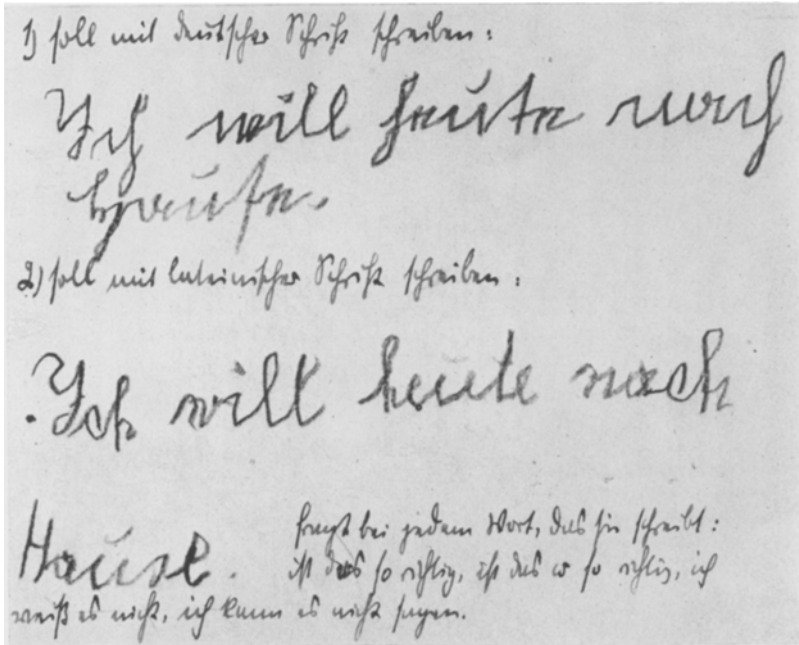 1) soll mit deutscher Schrift schreiben:
Ich will heute nach
Hause.
2) soll mit lateinischer Schrift schreiben:
Ich will heute nach
Hause.
fragt bei jedem Wort, das sie schreibt:
ist das so richtig, ist das so richtig, ich
weiß es nicht, ich kann es nicht sagen.